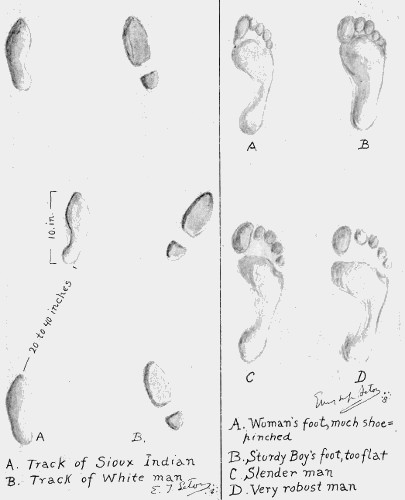 10. in.
20 to 40 inches
A
B.
A. Track of Sioux Indian
B. Track of White man
E. T Seton
A
B
C
D
A. Woman's foot, much shoe=
pinched
B., Sturdy Boy's foot, too flat
C Slender man
D. Very robust man